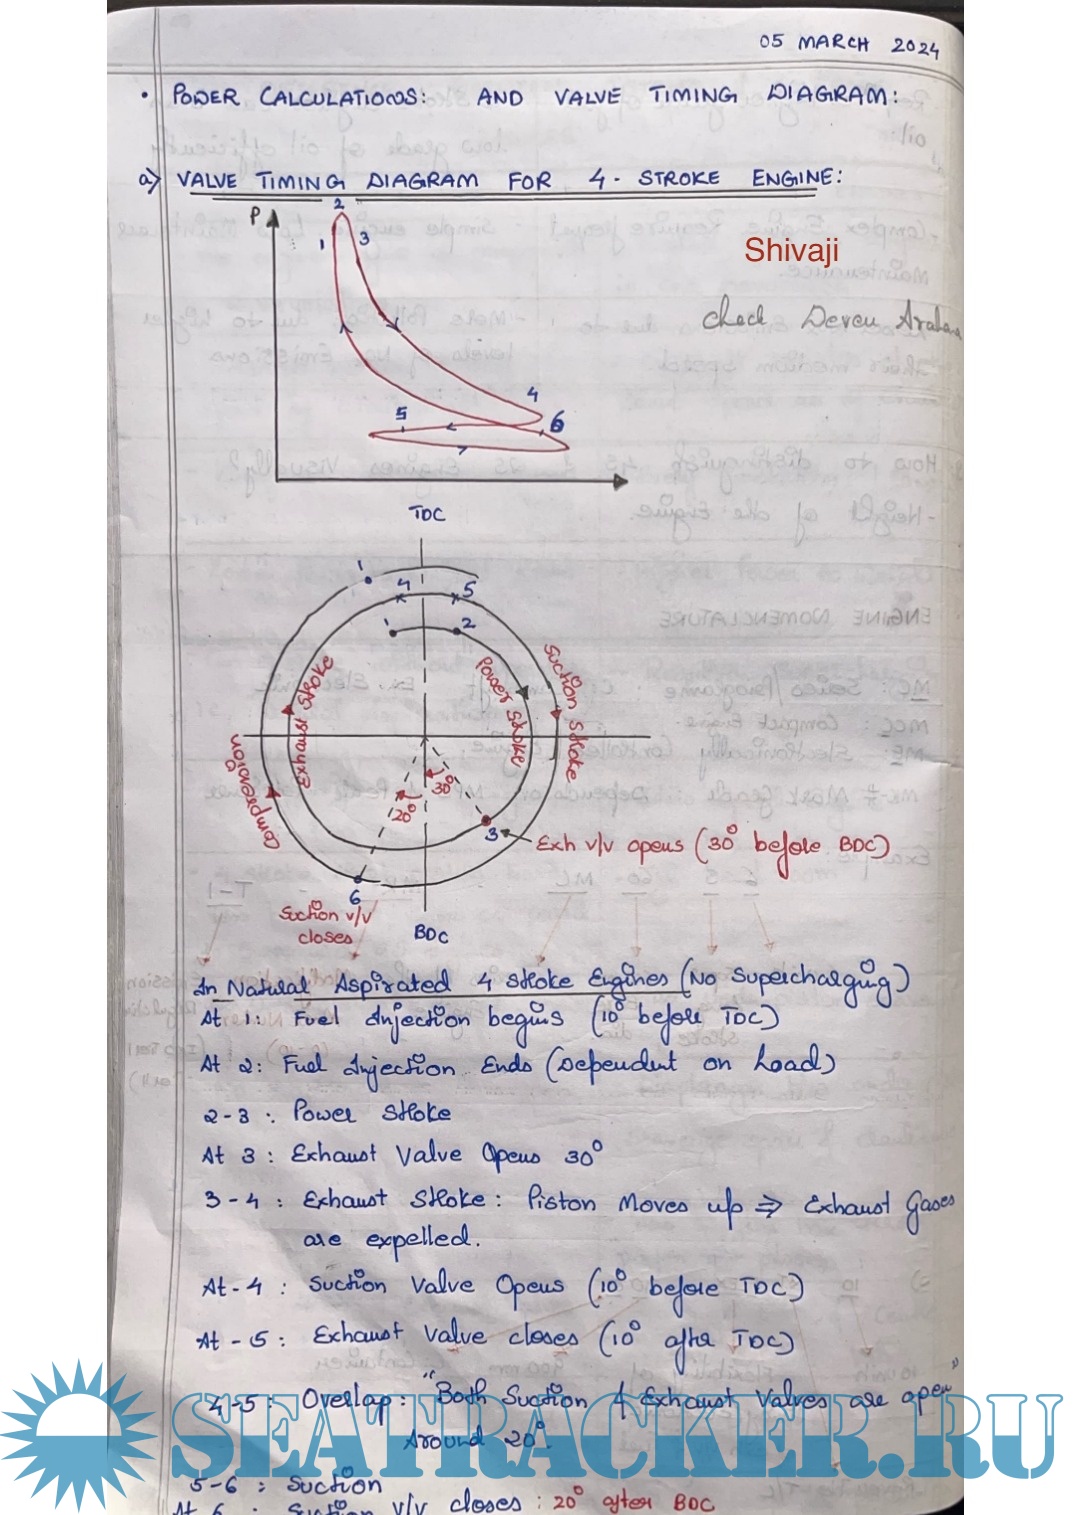 05 MARCH 2024
• POWER CALCULATIONS: AND VALVE TIMING DIAGRAM:
a) VALVE TIMING DIAGRAM FOR 4-STROKE ENGINE:
P
2
1
3
Shivaji
Check Deven
4
5
6
TDC
1
4
5
1
2
Exhaust Stroke
Power Stroke
Suction Stroke
30°
20°
3
Exh v/v opens (30° before BDC)
6
Suction v/v
closes
BDC
In Natural Aspirated 4 stroke Engines (No Supercharging)
At 1: Fuel Injection begins (10° before TDC)
At 2: Fuel Injection Ends (Dependent on Load)
2-3: Power Stroke
At 3: Exhaust Valve Opens 30°
3-4: Exhaust Stroke: Piston Moves up ⇒ Exhaust Gases
are expelled.
At-4: Suction Valve Opens (10° before TDC)
At-5: Exhaust Valve closes (10° after TDC)
4-5: Overlap: "Both Suction & Exhaust Valves are open"
Around 20°.
SEATRACKER.RU
5-6: Suction
At 6: Suction v/v closes: 20° after BDC